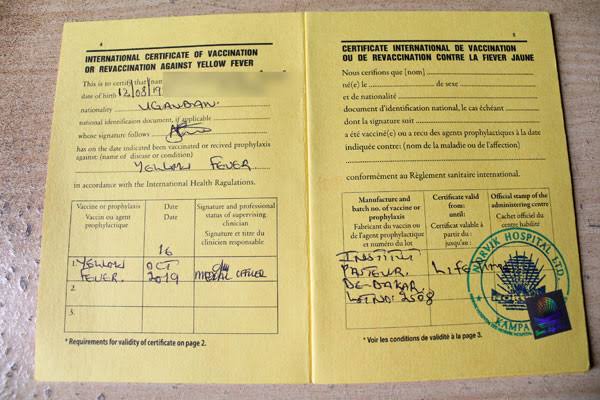 4
INTERNATIONAL CERTIFICATE OF VACCINATION
OR REVACCINATION AGAINST YELLOW FEVER
This is to certify that
date of birth 12/03/19
nationality UGANDAN.
national identificaion document, if applicable
whose signature follows
has on the date indicated been vaccinated or recived prophylaxis
against: (name of disease or condition)
YELLOW FEVER
in accordance with the International Health Ragulations.
Vaccine or prophylaxis
Vaccin ou agent
prophylactique
Date
Date
Signature and professional
status of supervising
clinician
Signature et titre du
clinicien responsible
1. YELLOW
FEVER.
16
OCT
2019
MEDICAL OFFICER
2.
3.
* Requirements for validity of certificate on page 2.
5
CERTIFICATE INTERNATIONAL DE VACCINATION
OU DE REVACCINATION CONTRE LA FIEVER JAUNE
Nous cerifions que (nom)
né(e) le de sexe
et de nationalité
document d'identification national, le cas échéant
dont la signature suit
a été vacciné(e) ou a recu des agents prophylactiques à la date
indiquée contre: (nom de la maladie ou de l'affection)
conformément au Règlement sanitaire international.
Manufacture and
batch no. of vaccine or
prophylaxis
Fabricant du vaccin ou
de l'agent prophylactique
et numéro du lot
Certificate valid
from:
until:
Certificat valable à
partir du :
jusqu'au :
Official stamp of the
administering centre
Cachet officiel du
centre habilité
INSTITUT
PASTEUR
DE-DAKAR
LOT NO: 2508
Life time
NORVIK HOSPITAL LTD.
KAMPALA
* Voir les conditions de validité à la page 3.